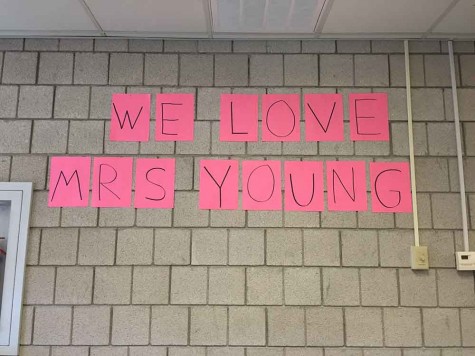 WE LOVE
MRS YOUNG